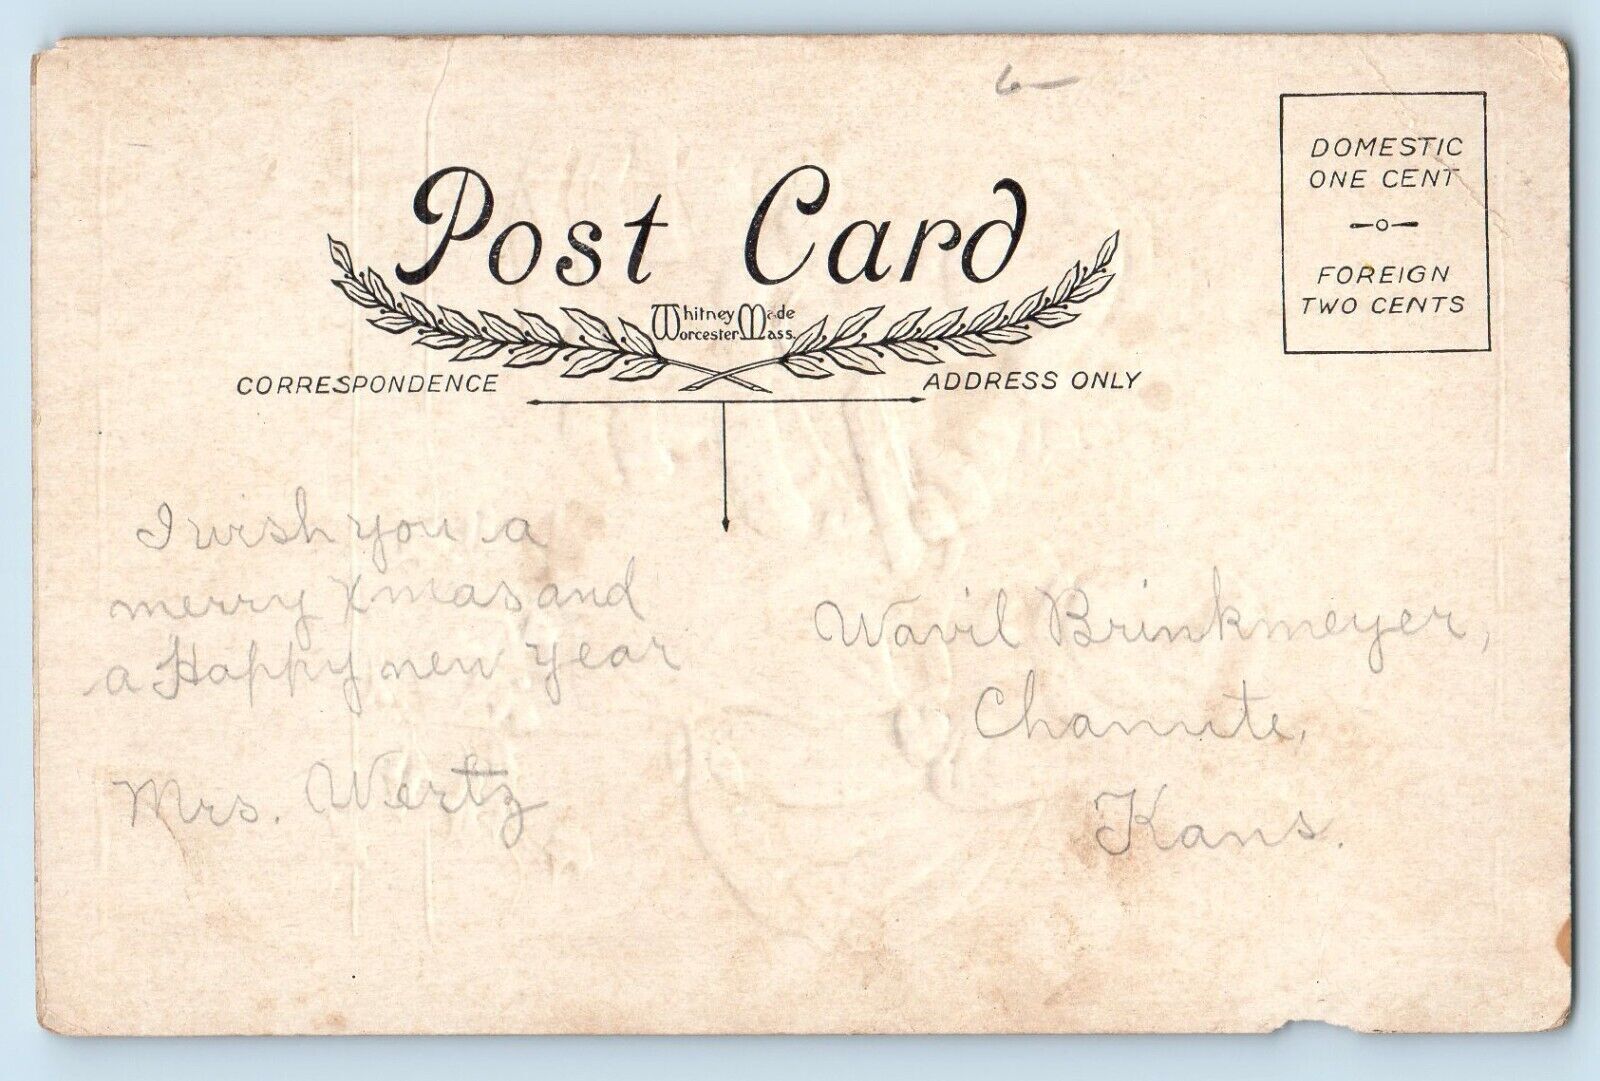 6
Post Card
DOMESTIC
ONE CENT
FOREIGN
TWO CENTS
Whitney Made
Worcester Mass.
CORRESPONDENCE
ADDRESS ONLY
I wish you a
merry Xmas and
a Happy new year
Mrs. Wertz
Wavil Brinkmeyer,
Chanute,
Kans.